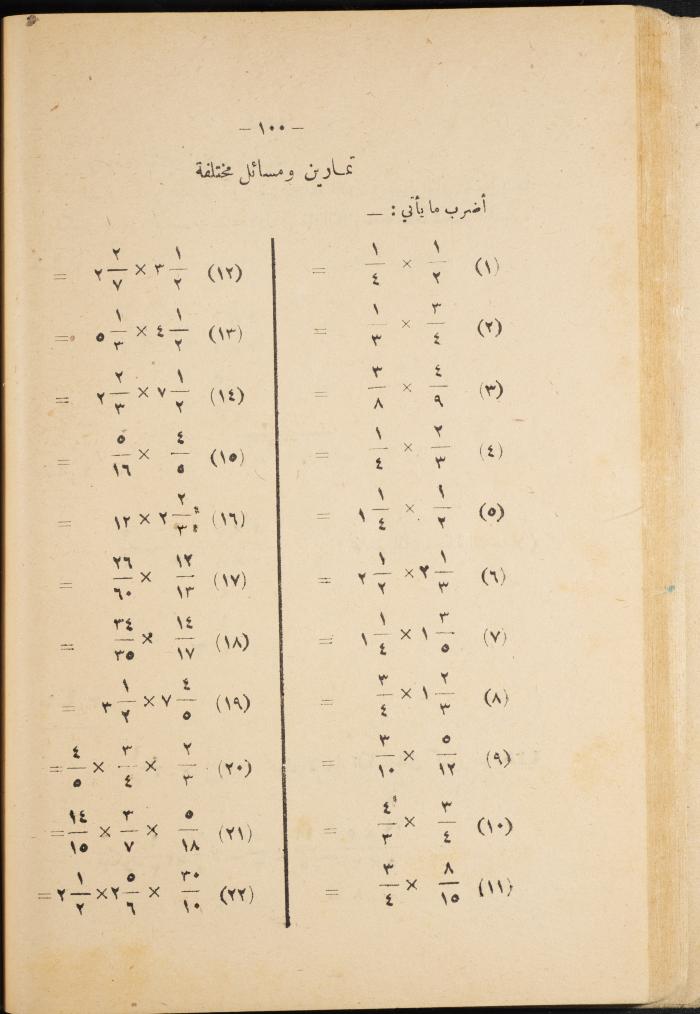 – ١٠٠ –
تمارين ومسائل مختلفة
أضرب ما يأتي : —
(١) ١/٢ × ١/٤ =
(٢) ٣/٤ × ١/٣ =
(٣) ٤/٩ × ٣/٨ =
(٤) ٢/٣ × ١/٤ =
(٥) ١/٢ × ١/٤ ١ =
(٦) ١/٣ ٢ × ١/٢ ٢ =
(٧) ٣/٥ ١ × ١/٤ ١ =
(٨) ٢/٣ ١ × ٣/٤ =
(٩) ٥/١٢ × ٣/١٠ =
(١٠) ٣/٤ × ٤/٣ =
(١١) ٨/١٥ × ٣/٤ =
(١٢) ١/٢ ٣ × ٢/٧ ٢ =
(١٣) ١/٢ ٤ × ١/٣ ٥ =
(١٤) ١/٢ ٧ × ٢/٣ ٢ =
(١٥) ٤/٥ × ٥/١٦ =
(١٦) ٢/٣ ٢ × ١٢ =
(١٧) ١٢/١٣ × ٢٦/٦٠ =
(١٨) ١٤/١٧ × ٣٤/٣٥ =
(١٩) ٤/٥ ٧ × ١/٢ ٣ =
(٢٠) ٢/٣ × ٣/٤ × ٤/٥ =
(٢١) ٥/١٨ × ٣/٧ × ١٤/١٥ =
(٢٢) ٣٠/١٠ × ٥/٦ ٢ × ١/٢ ٢ =